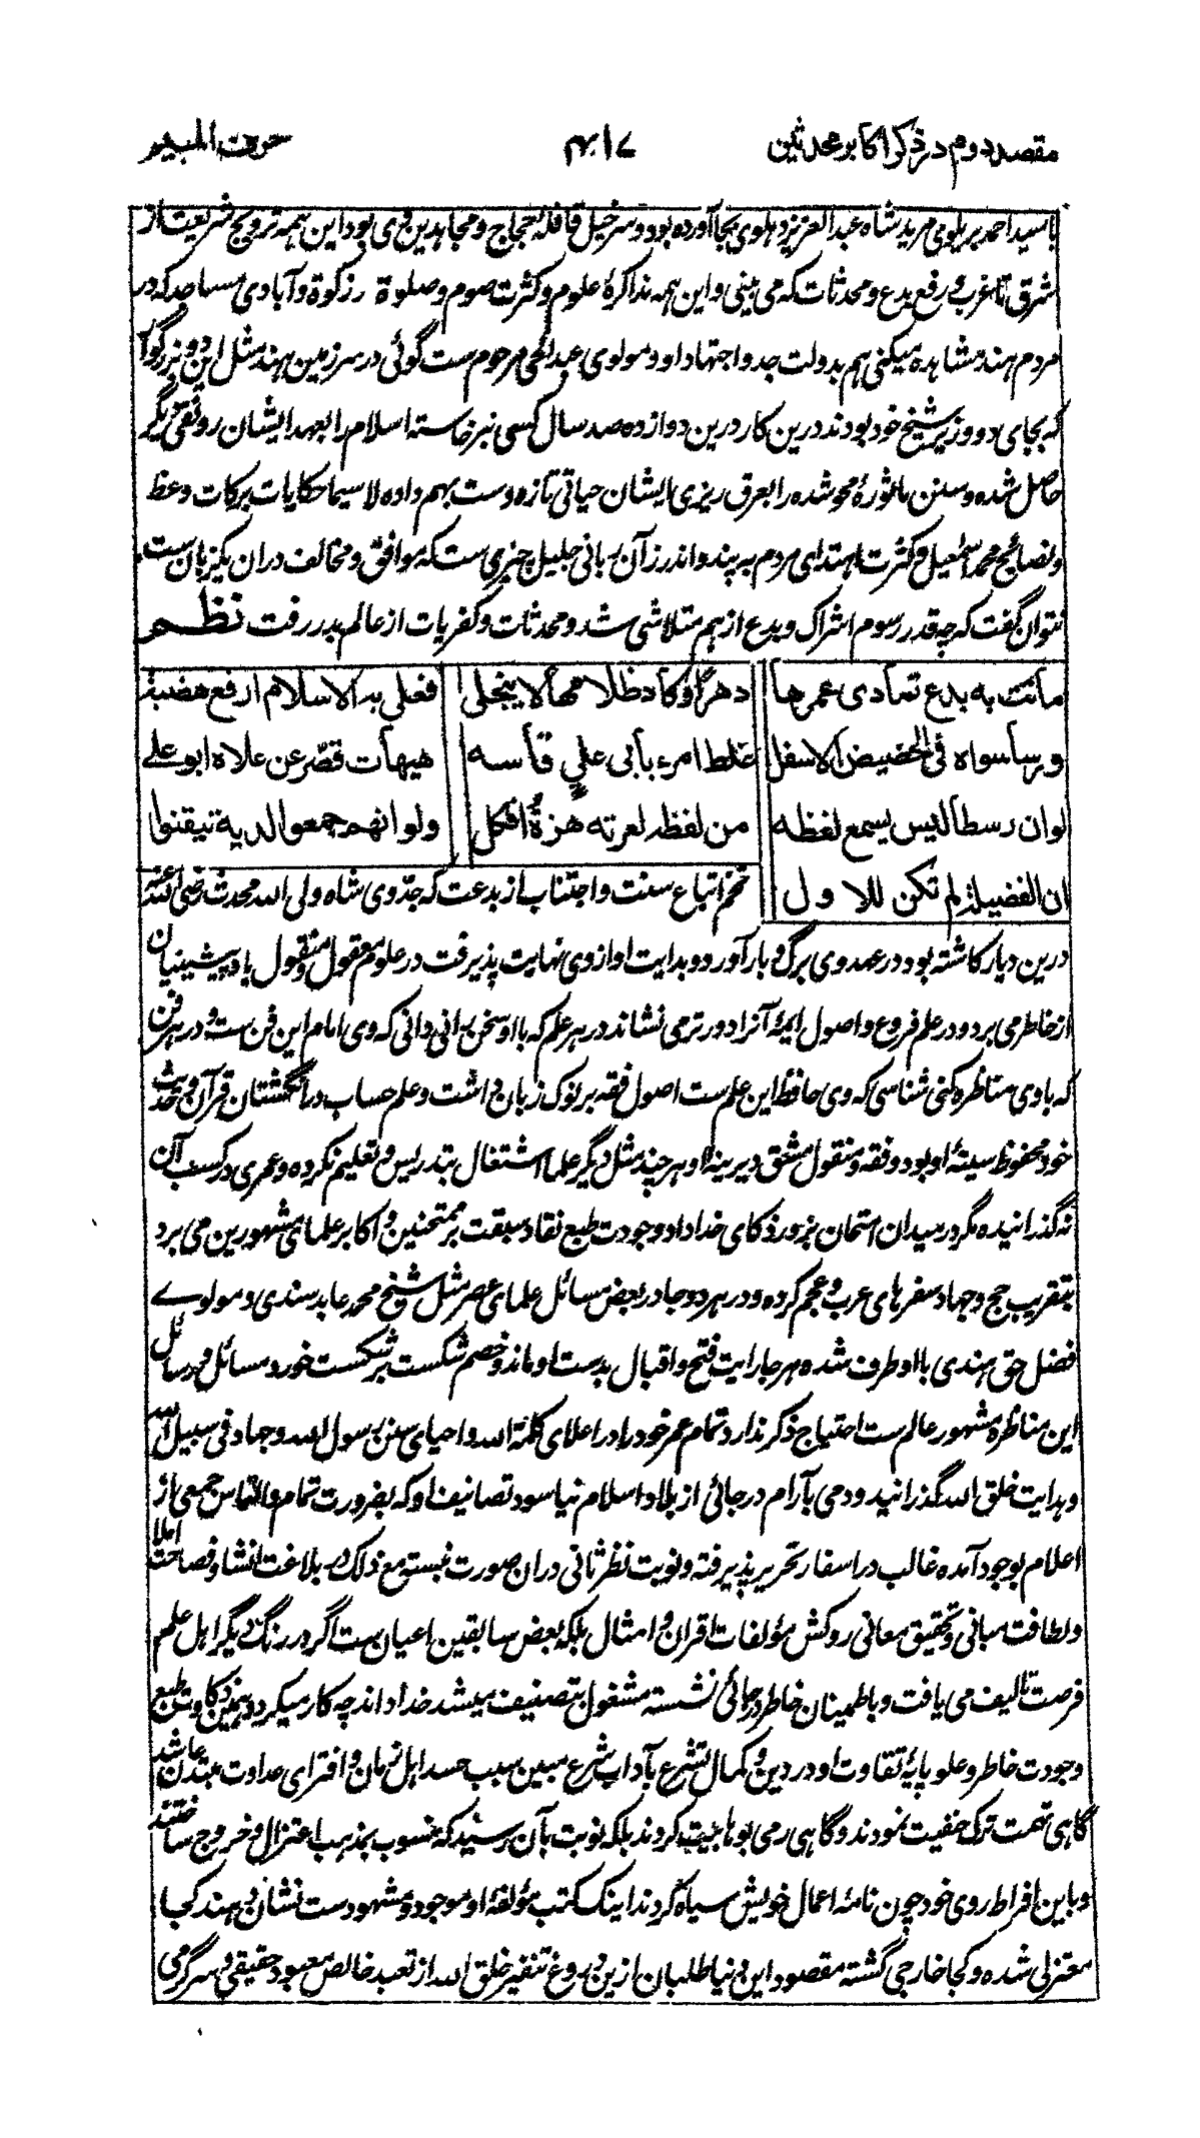 مقصد دوم در ذکر اکابر محدثین ۴۱۷ حرف المیم
با سید احمد بریلوی مرید شاه عبدالعزیز دهلوی بجا آورده بود و سرخیل قافلهٔ حجاج و مجاهدین وی بود این همه ترویج شریعت از
شرق تا غرب و رفع بدع و محدثات که می بینی و این همه مذاکرهٔ علوم و کثرت صوم و صلوة و زکوة و آبادی مساجد که در
مردم هند مشاهده میکنی هم بدولت جد و اجتهاد او و مولوی عبدالحی مرحوم ست گوئی در سرزمین هند مثل این دو بزرگوار
که بجای دو وزیر شیخ خود بودند درین کار درین دوازده صد سال کسی بر نخاسته اسلام را بعهد ایشان رونقی دیگر
حاصل شده و سنن ماثورهٔ محو شده را بعرق ریزی ایشان حیاتی تازه دست بهم داده لا سیما حکایات برکات وعظ
و نصائح محمد اسمعیل و کثرت اهتدای مردم به پند و اندرز آن ربانی جلیل چیزی ست که موافق و مخالف دران یکزبان ست
نتوان گفت که چه قدر رسوم اشراک و بدع از هم متلاشی شد و محدثات و کفریات از عالم بدر رفت نظم
ماتت به بدع تمادی عمرها دهرا و کاد ظلامها لا ینجلی فعلی به الاسلام ارفع هضبة
و رسا سواه فی الحضیض الاسفل غلط امرء بابی علی قاسه هیهات قصّر عن علاه ابو علی
لو ان رسطالیس یسمع لفظه من لفظه لعرته هزة افکل ولو انهم جمعوا لدیه تیقنوا
ان الفضیلة لم تکن للاول تخم اتباع سنت و اجتناب از بدعت که جد وی شاه ولی الله محدث رضی الله عنه
درین دیار کاشته بود در عهد وی برگ و بار آورد و بدایت او از وی نهایت پذیرفت در علوم معقول و منقول یاد پیشینیان
از خاطر می برد و در علم فروع و اصول ایمهٔ آنرا دورتر می نشاند در هر علم که با او سخن برانی دانی که وی امام این فن ست و در هر فن
که با وی مناظره کنی شناسی که وی حافظ این علم ست اصول فقه بر نوک زبان داشت و علم حساب در انگشتان قرآن و حدیث
خود محفوظ سینهٔ او بود و فقه و منقول مشق دیرینهٔ او هر چند مثل دیگر علما اشتغال بتدریس و تعلیم نکرده و عمری در کسب آن
نگذرانیده مگر در میدان امتحان بزور ذکای خداداد و جودت طبع نقاد سبقت بر ممتحنین و اکابر علمای مشهورین می برد
بتقریب حج و جهاد سفرهای عرب و عجم کرده و در هر دو جا در بعض مسائل علمای عصر مثل شیخ محمد عابد سندی و مولوے
فضل حق هندی با او طرف شده هر جا رایت فتح و اقبال بدست او ماند و خصم شکست بر شکست خورد مسائل و رسائل
این مناظره مشهور عالم ست احتیاج ذکر ندارد تمام عمر خود را در اعلای کلمة الله و احیای سنن رسول الله و جهاد فی سبیل الله
و هدایت خلق الله گذرانید و دمی بآرام در جائی از بلاد اسلام نیاسود تصانیف او که بضرورت تمام و التماس جمعی از
اعلام بوجود آمده غالب در اسفار تحریر پذیرفته و نوبت نظر ثانی دران صورت نبسته مع ذلک در بلاغت انشا و فصاحت املا
و لطافت مبانی و تحقیق معانی روکش مؤلفات اقران و امثال بلکه بعض سابقین اعیان ست اگر در رنگ دیگر اهل علم
فرصت تالیف می یافت و باطمینان خاطر در جائی نشسته مشغول بتصنیف میشد خدا داند چه کار میکرد و بهمین ذکاوت طبع
و جودت خاطر و علو پایهٔ تفاوت او در دین و کمال تشرع بآداب شرع مبین بسبب حسد اهل زمان و افترای عداوت مبتدعان شد
گاهی تهمت ترک حنفیت نمودند و گاهی رمی بوهابیت کردند بلکه نوبت بآن رسید که منسوب بمذهب اعتزال و خروج ساختند
و باین افراط روی خود چون نامهٔ اعمال خویش سیاه کردند اینک کتب مؤلفهٔ او موجود و مشهود ست نشان بدهند کجا
معتزلی شده و کجا خارجی گشته مقصود این دنیا طلبان ازین دروغ تنفیر خلق الله از تعبد خالص معبود حقیقی و سرگرمی